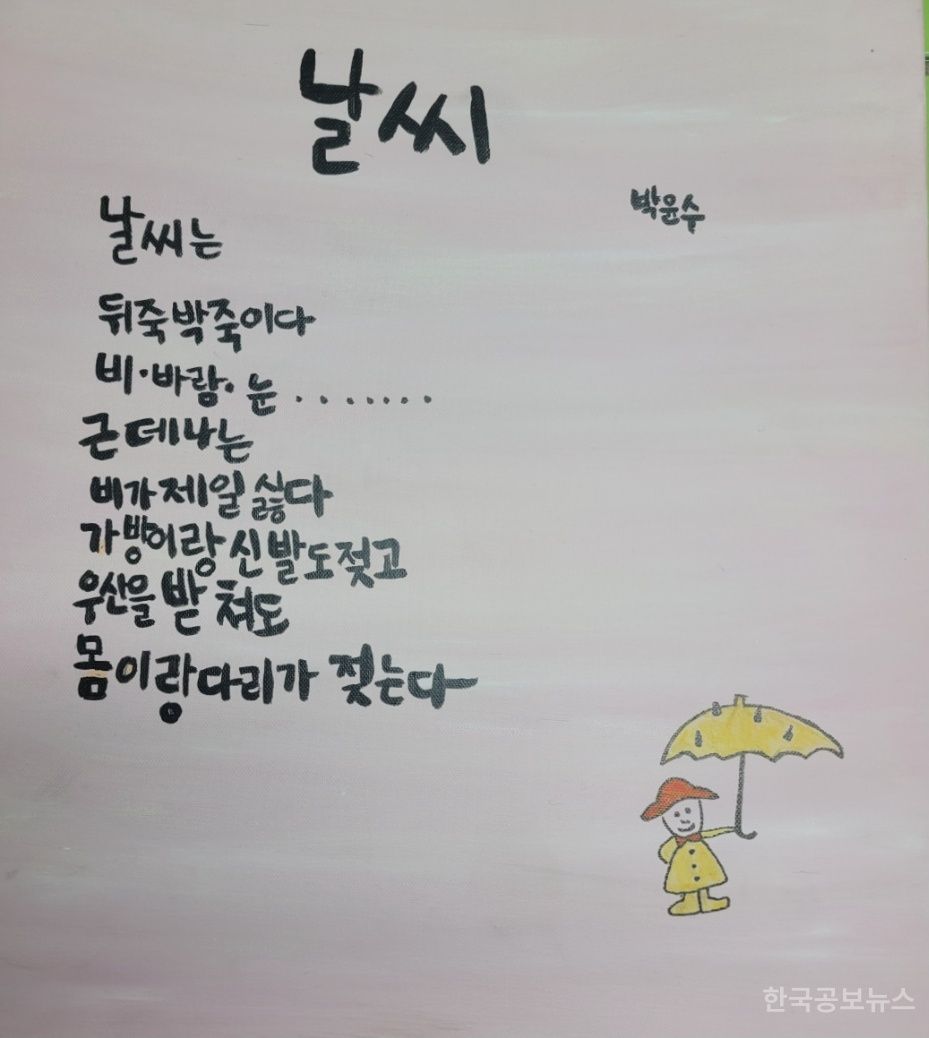 날씨
박윤수
날씨는
뒤죽박죽이다
비·바람·눈·······
근데나는
비가제일싫다
가방이랑신발도젖고
우산을받쳐도
몸이랑다리가젖는다
한국공보뉴스